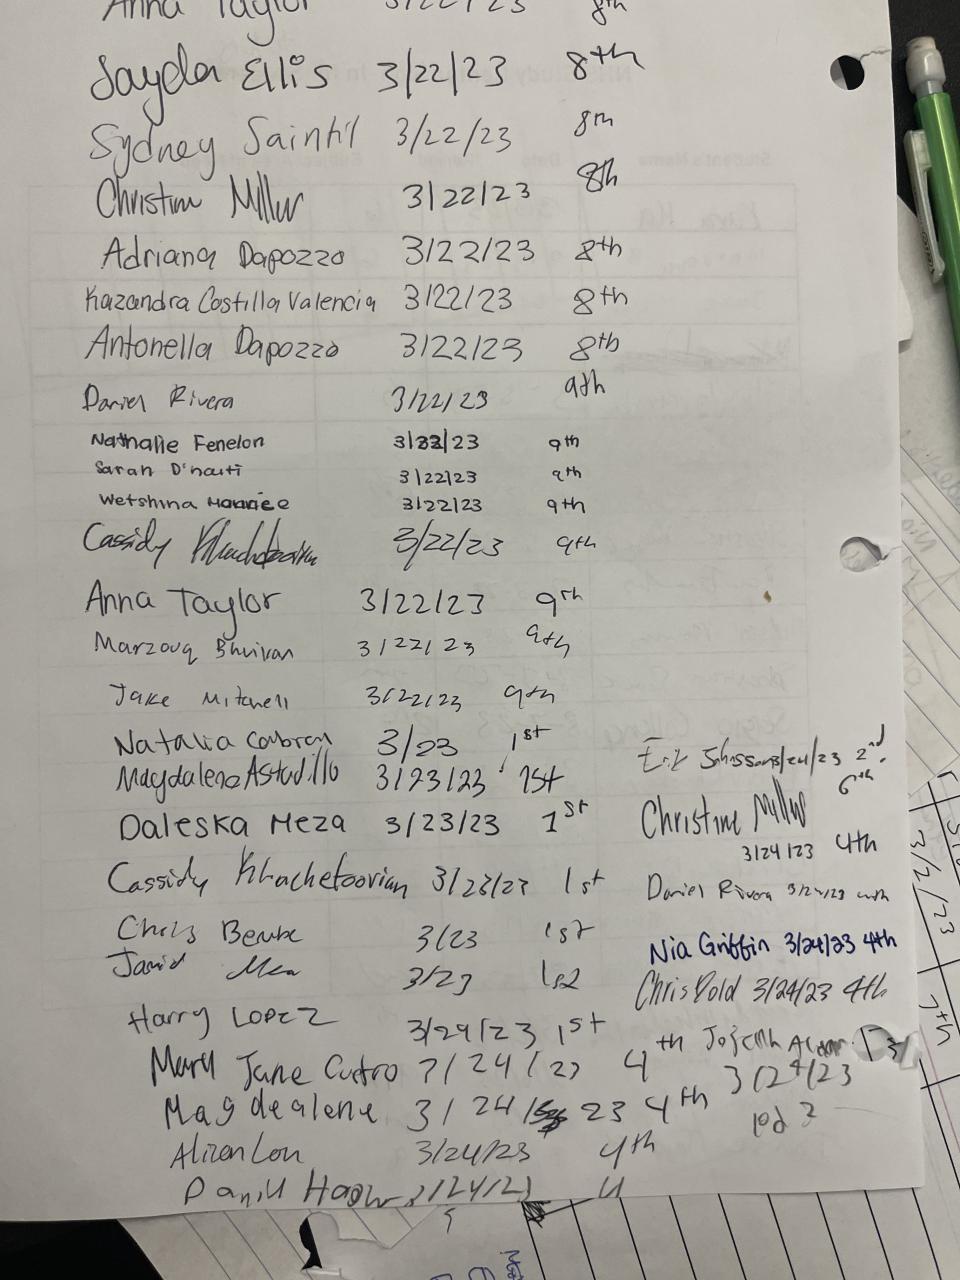 Anna Taylor 3/22/23 8th
Jayda Ellis 3/22/23 8th
Sydney Saintil 3/22/23 8th
Christine Miller 3/22/23 8th
Adriana Dapozzo 3/22/23 8th
Kazandra Costilla Valencia 3/22/23 8th
Antonella Dapozzo 3/22/23 8th
Daniel Rivera 3/22/23 9th
Nathalie Fenelon 3/22/23 9th
Sarah D'haiti 3/22/23 9th
Wetshina 3/22/23 9th
Cassidy Khachetoorian 3/22/23 9th
Anna Taylor 3/22/23 9th
Marzouq Bhuiyan 3/22/23 9th
Jake Mitchell 3/22/23 9th
Natalia 3/23 1st
Magdalena Astudillo 3/23/23 1st
Daleska Meza 3/23/23 1st
Cassidy Khachetoorian 3/23/23 1st
Chris 3/23 1st
3/23
Harry Lopez 3/29/23 1st
Mary Jane Castro 4th
Magdealene 3/24/23 4th
3/24/23 4th
3/24/23 2nd
6th
Christine Miller
3/24/23 4th
Daniel Rivera 3/24/23
Nia Griffin 3/24/23 4th
Chris Dold 3/24/23 4th
3/24/23
3/2/23
7th